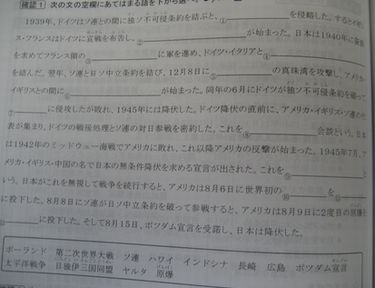 確認1 次の文の空欄にあてはまる語を下から選べ。
1939年、ドイツはソ連との間に独ソ不可侵条約を結ぶと、① を侵略した。するとイギリ
ス・フランスはドイツに宣戦を布告し、② が始まった。日本は1940年に資源
を求めてフランス領の③ に軍を進め、ドイツ・イタリアと④
を結んだ。翌年、ソ連と日ソ中立条約を結び、12月8日に⑤ の真珠湾を攻撃し、アメリカ・
イギリスとの間に⑥ が始まった。同年の6月にドイツが独ソ不可侵条約を破って
⑦ に侵攻したが敗れ、1945年には降伏した。ドイツ降伏の直前に、アメリカ・イギリス・ソ連の代
表が集まり、ドイツの戦後処理とソ連の対日参戦を密約した。これを⑧ 会談という。日本
は1942年のミッドウェー海戦でアメリカに敗れ、これ以降アメリカの反撃が始まった。1945年7月、ア
メリカ・イギリス・中国の名で日本の無条件降伏を求める宣言が出された。これを⑨ と
いう。日本がこれを無視して戦争を続行すると、アメリカは8月6日に世界初の⑩ を⑪
に投下した。8月8日にソ連が日ソ中立条約を破って参戦すると、アメリカは8月9日に2度目の原爆を
⑫ に投下した。そして8月15日、ポツダム宣言を受諾し、日本は降伏した。
ポーランド 第二次世界大戦 ソ連 ハワイ インドシナ 長崎 広島 ポツダム宣言
太平洋戦争 日独伊三国同盟 ヤルタ 原爆